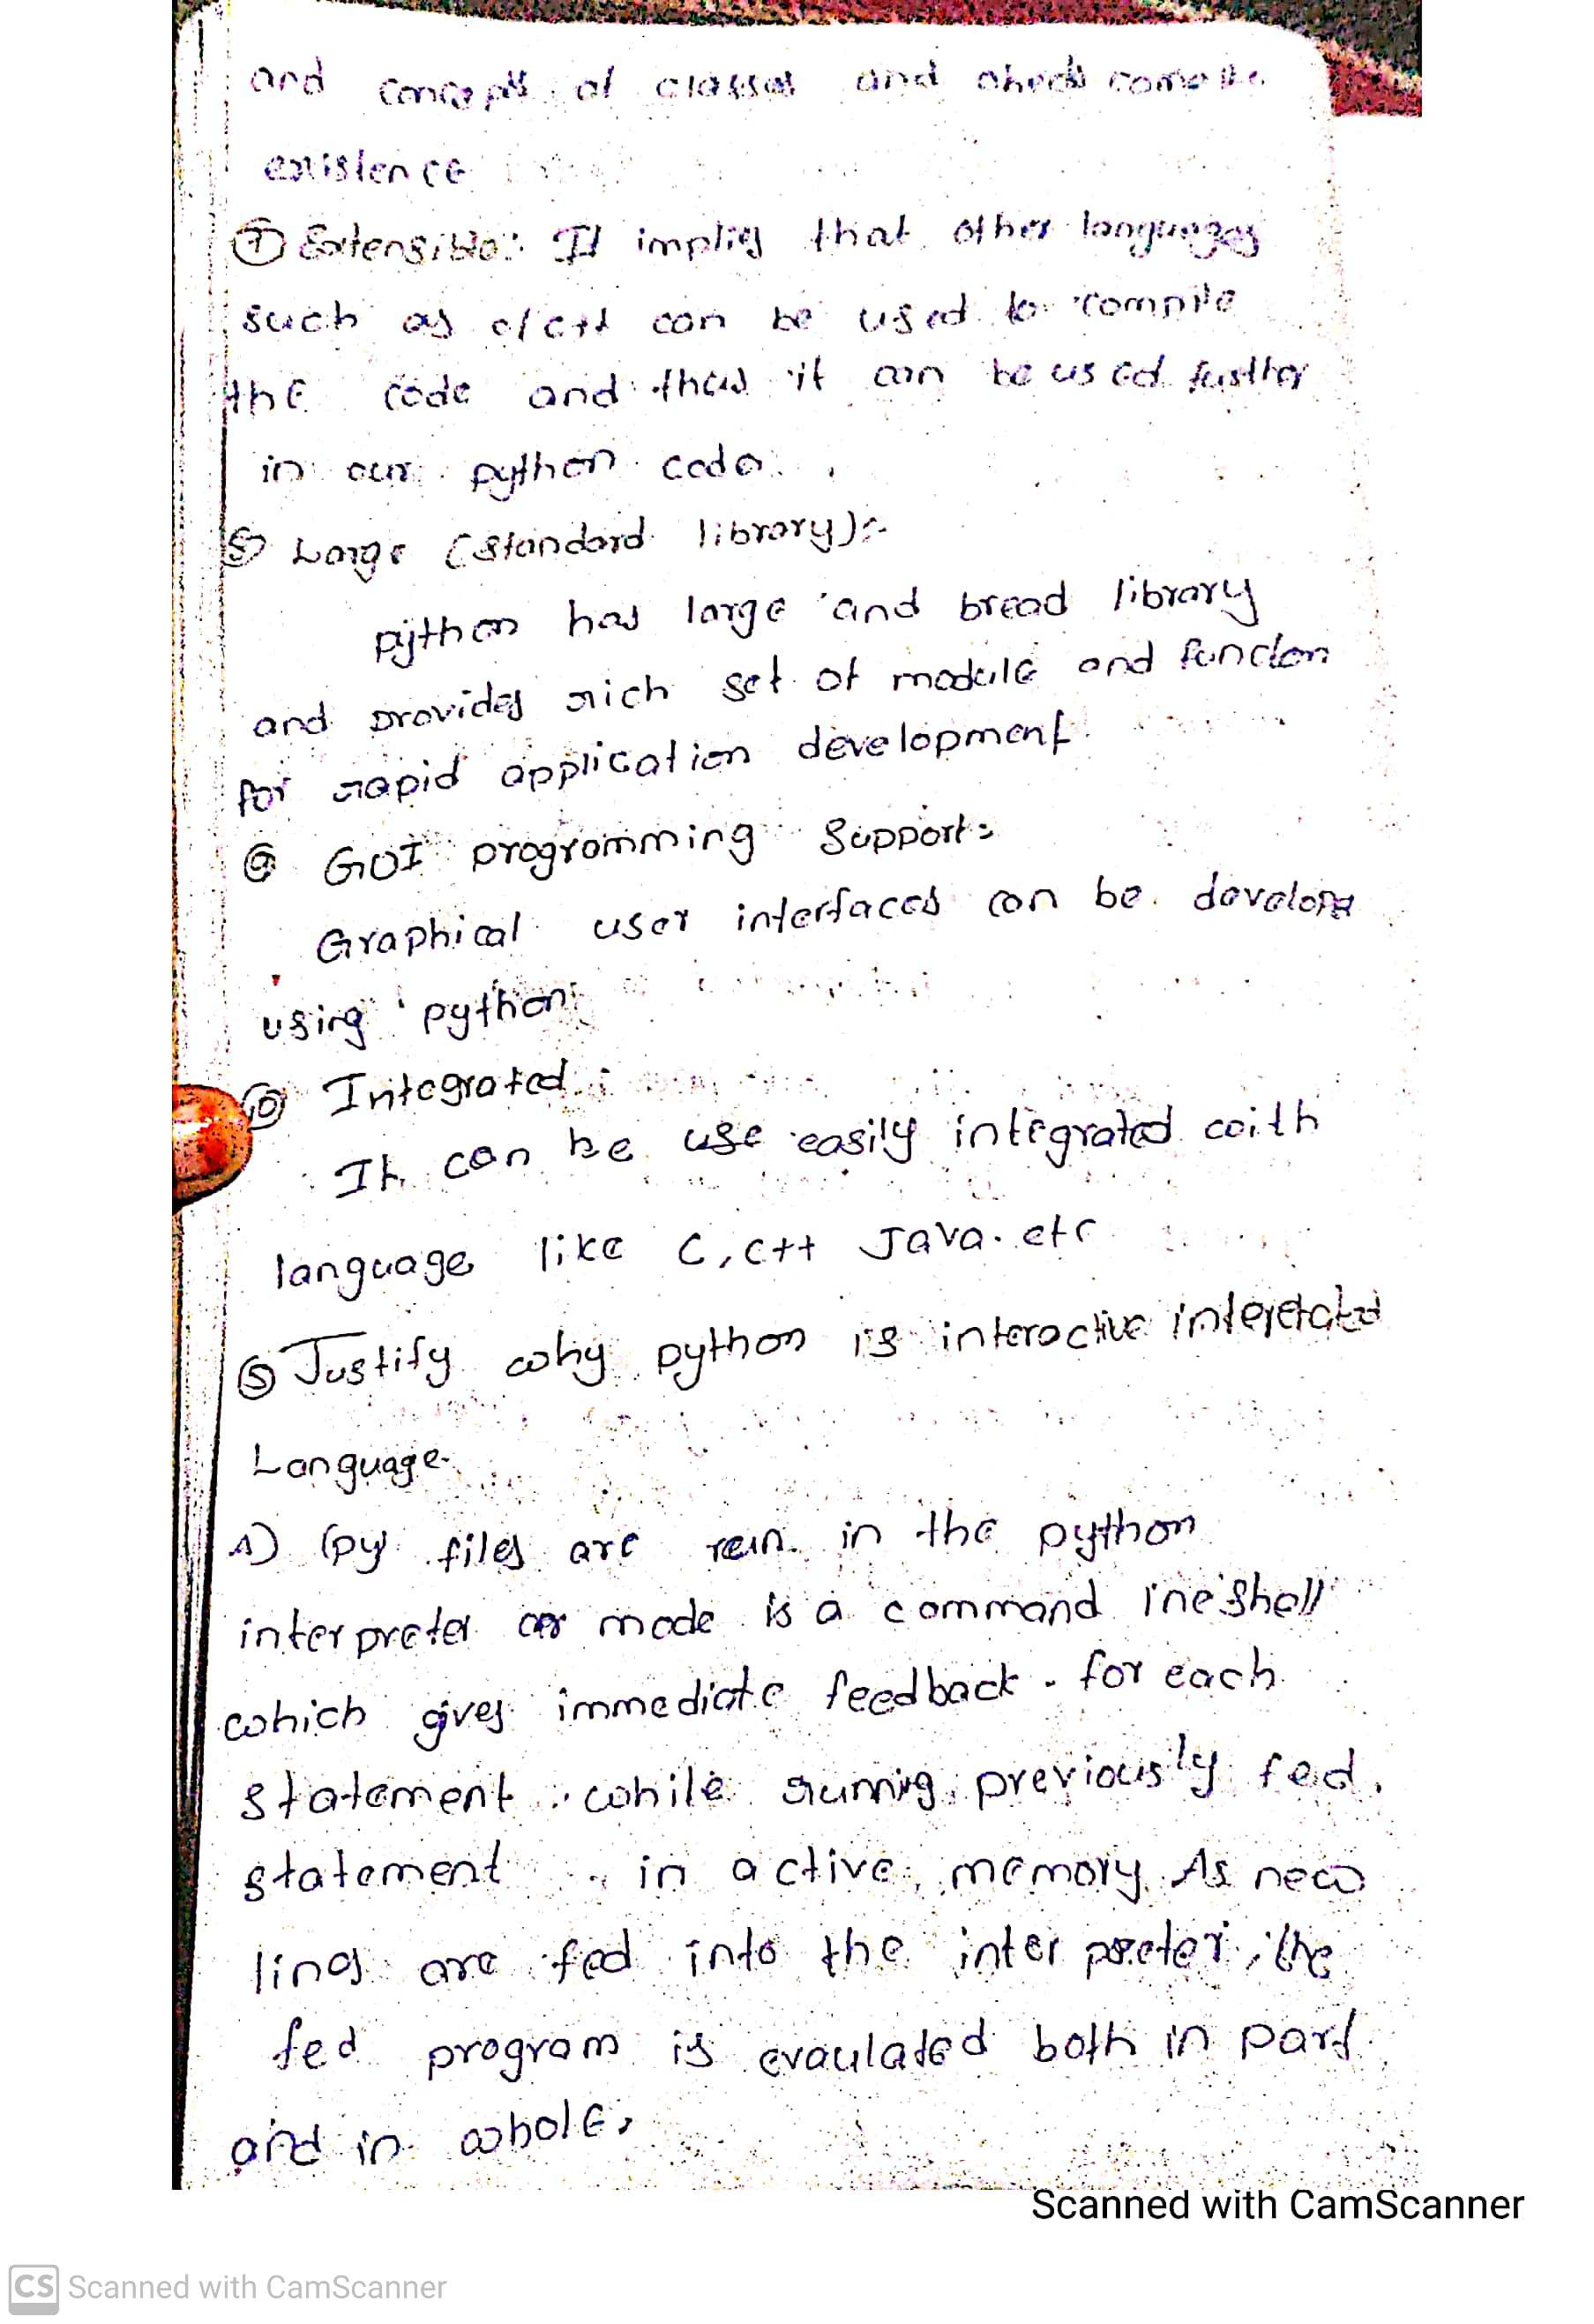 and concepts of classes and
existence
⑦ Extensible: It implies that other languages
such as c/c++ can be used to compile
the code and thus it can be used further
in our python code.
⑧ Large (standard library):-
python has large and broad library
and provides rich set of module and function
for rapid application development.
⑨ GUI programming Support:
Graphical user interfaces can be
using python.
⑩ Integrated:
It can be use easily integrated with
language like C, C++ Java. etc
⑤ Justify why python is interactive
Language.
A) (py files are run in the python
interpreter mode is a command line shell
which gives immediate feedback. for each
statement. while running previously fed
statement in active memory. As new
lines are fed into the interpreter, the
fed program is evaulated both in part
and in whole.
Scanned with CamScanner
CS Scanned with CamScanner